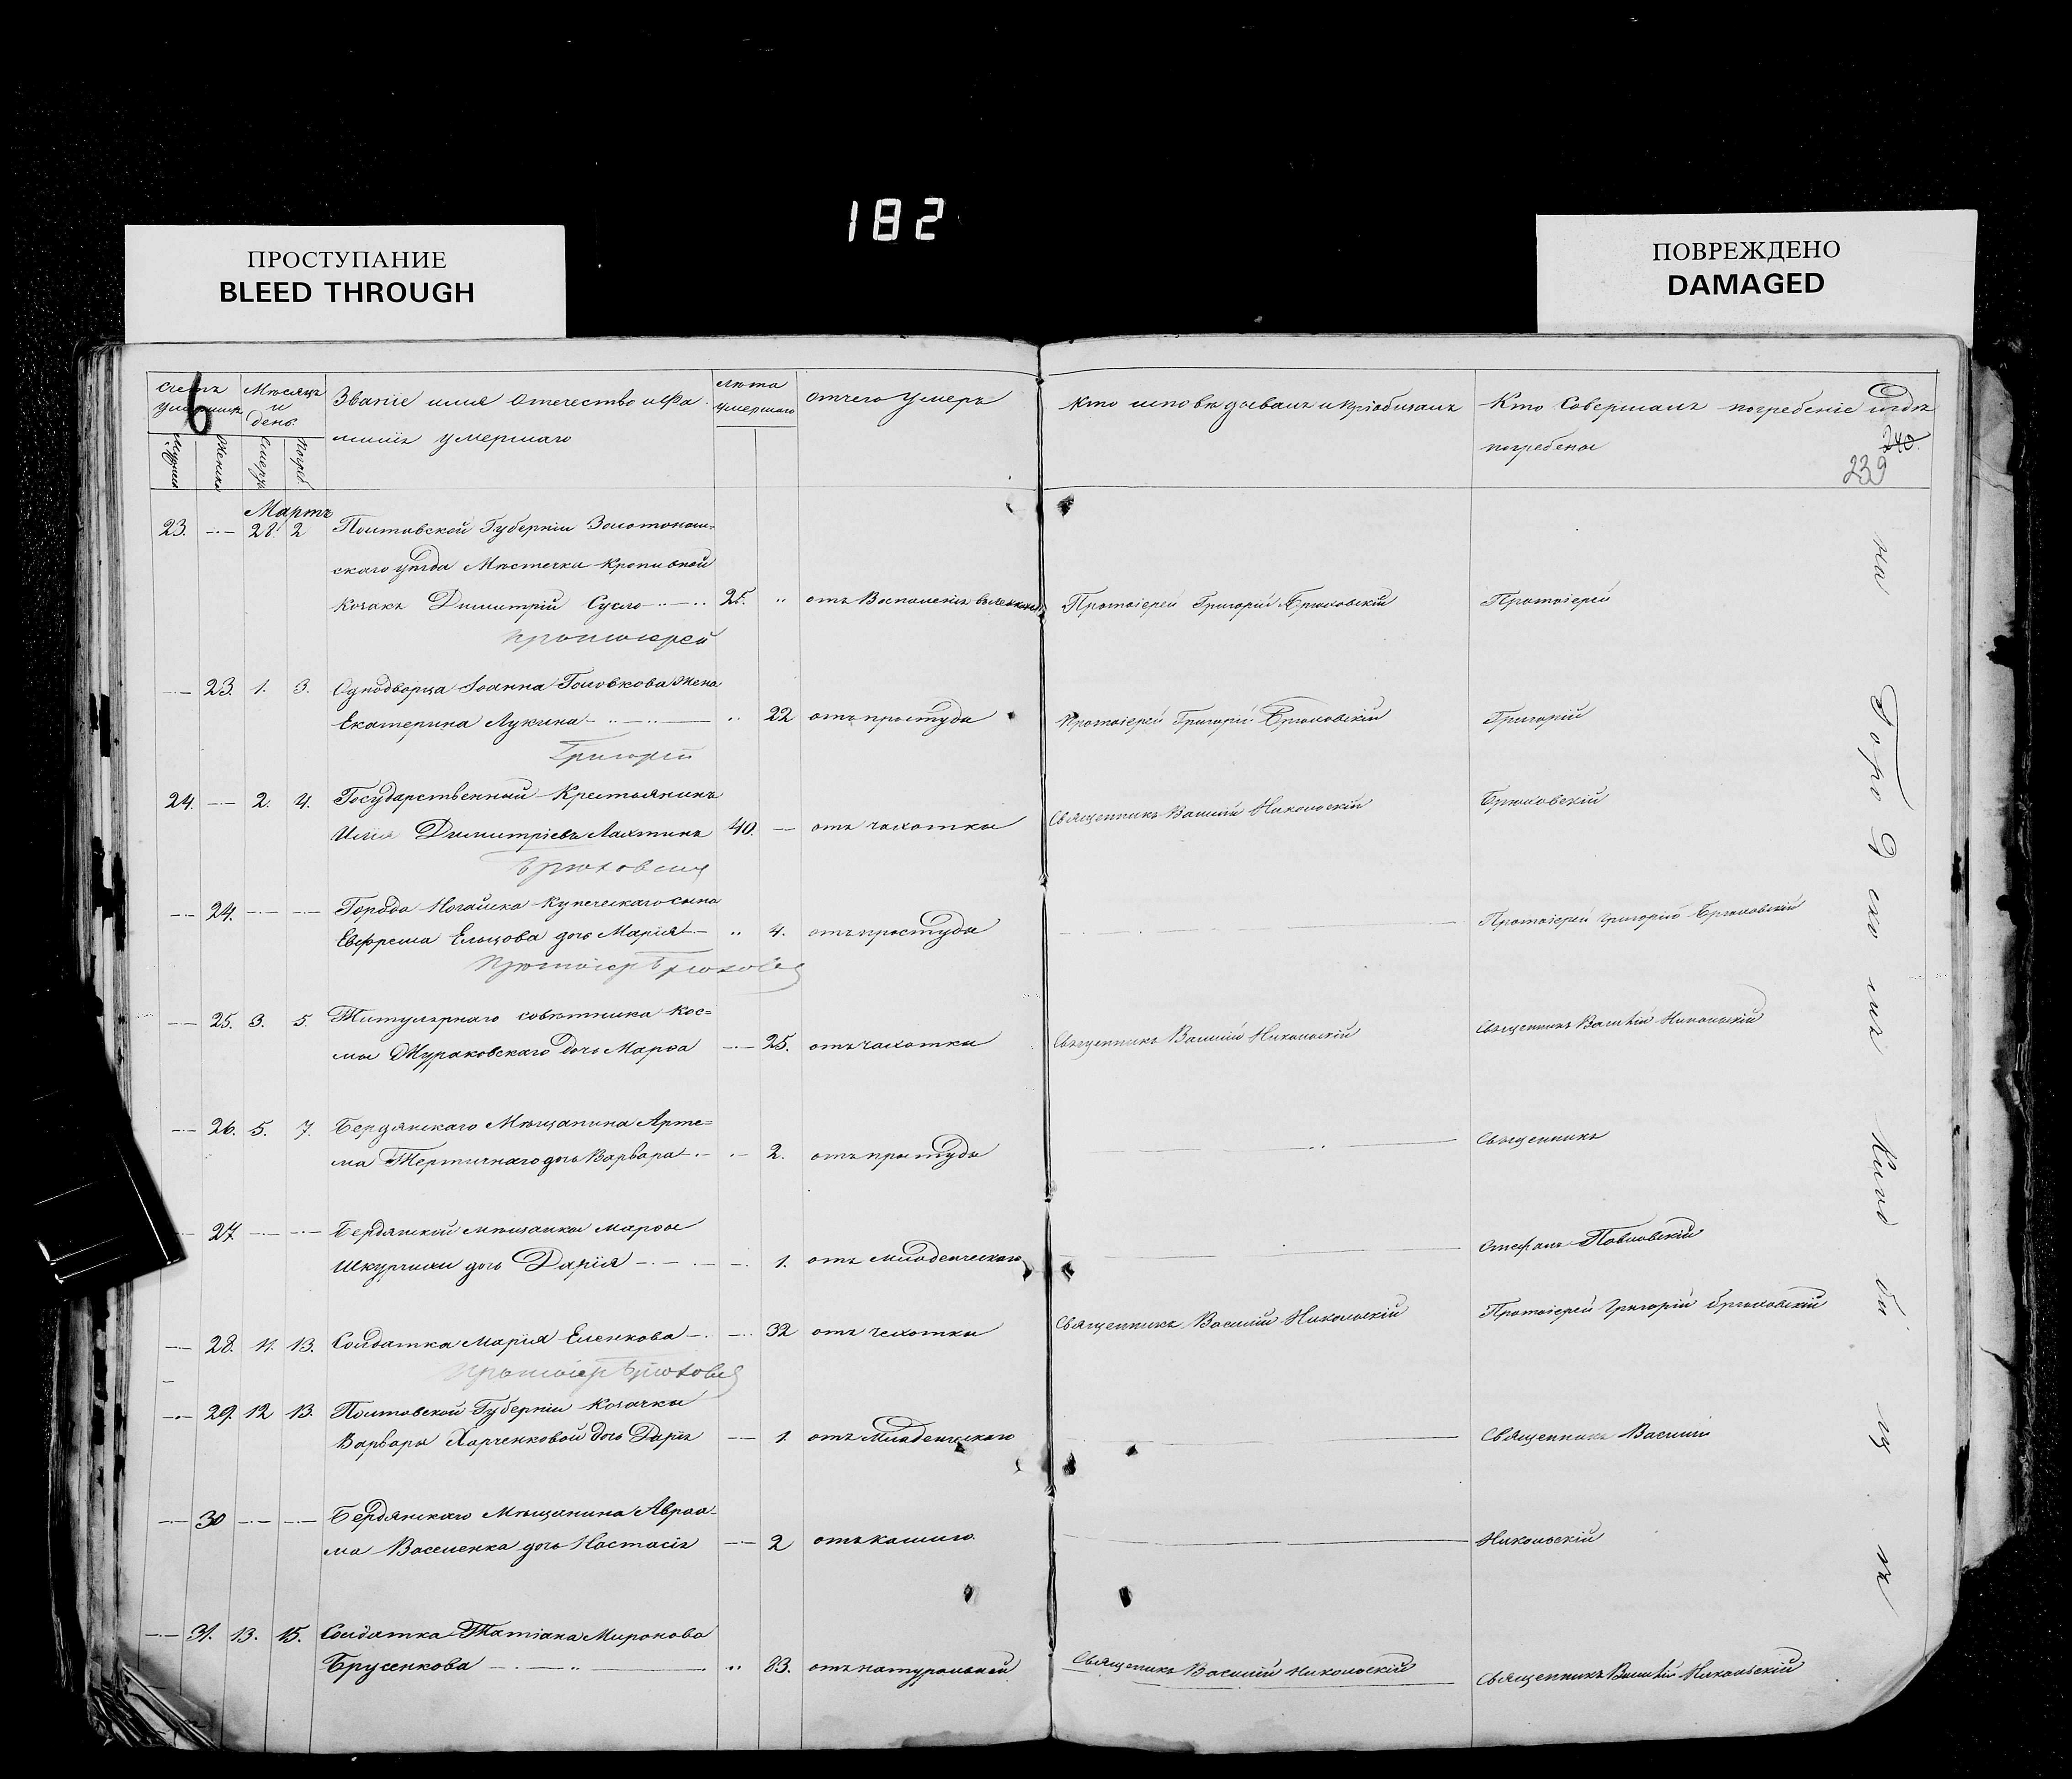 182
ПРОСТУПАНИЕ
BLEED THROUGH
ПОВРЕЖДЕНО
DAMAGED
Счетъ умершихъ
Мѣсяцъ и день
Званіе имя отечество и фа-
миліи умершаго
лѣта умершаго
отчего умеръ
Кто исповѣдывалъ и пріобщалъ
Кто Совершалъ погребеніе и гдѣ
погребены
240.
239
Мартъ
23. 28. 2 Полтавской Губерніи Золотонош=
скаго уѣзда Мѣстечка Кропивной
Козакъ Димитрій Сусло 25. отъ Воспаленія Протоіерей Григорій Брюховскій Протоіерей
Протоіерей
23. 1. 3. Однодворца Іоанна Головкова жена
Екатерина Лукина 22 отъ простуды Протоіерей Григорій Брюховскій Григорій
Григорій
24. 2. 4. Государственный Крестьянинъ
Илія Димитріевъ Лахтинъ 40. отъ чахотки Священникъ Василій Никольскій Брюховскій
Брюховскій
24. Города Ногайска Купеческаго сына
Евфрема Ельцова дочь Марія 4. отъ простуды Протоіерей Григорій Брюховскій
25. 3. 5. Титулярнаго совѣтника Кос=
мы Жураковскаго дочь Марѳа 25. отъ чахотки Священникъ Василій Никольскій Священникъ Василій Никольскій
26. 5. 7. Бердянскаго Мѣщанина Арте=
ма Тертичнаго дочь Варвара 2. отъ простуды Священникъ
27 Бердянской мѣщанки Марѳы
дочь Дарія 1. отъ младенческаго Стефанъ Павловскій
28. 11. 13. Солдатка Марія Еленкова 32 отъ чахотки Священникъ Василій Никольскій Протоіерей Григорій Брюховскій
29. 12 13. Полтавской Губерніи Козачки
Варвары Харченковой дочь Дарія 1. отъ Младенческаго Священникъ Василій
30 Бердянскаго Мѣщанина Авраа-
ма Василенка дочь Настасія 2 отъ кашлю Никольскій
31. 13. 15. Солдатка Татіана Миронова
Брусенкова 83. отъ натуральной Священикъ Василій Никольскій Священникъ Василій Никольскій
на
Городскомъ
Кладбищѣ